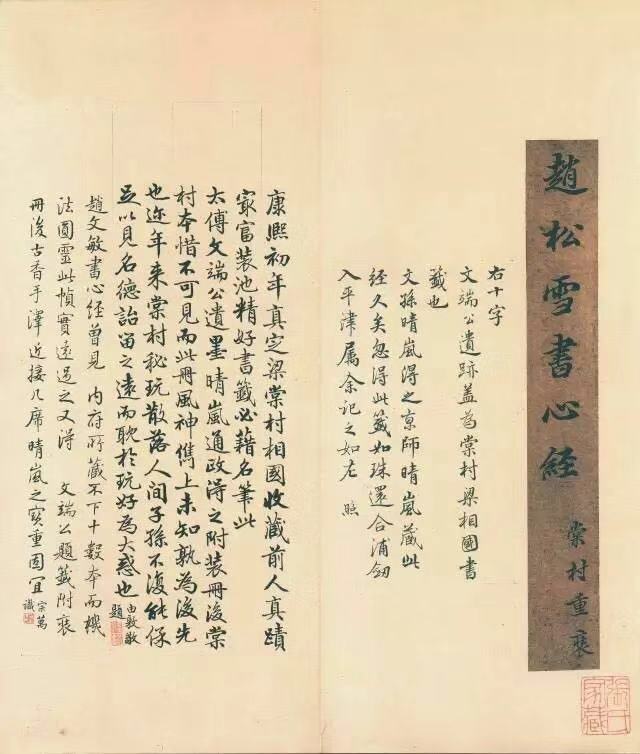 趙松雪書心經 棠村重裝
張氏家藏
右十字
文端公遺跡蓋為棠村梁相國書
籤也
文孫晴嵐得之京師晴嵐藏此
經久矣忽得此籤如珠還合浦劒
入平津属余記之如左 照
康熙初年真定梁棠村相國收藏前人真蹟
冣富裝池精好書籤必藉名筆此
太傅文端公遺墨晴嵐通政得之附裝冊後棠
村本惜不可見而此冊風神儁上未知孰為後先
也迩年来棠村秘玩散落人間子孫不復能保
足以見名德詒留之遠而耽於玩好為大惑也 由敦敬
題
趙文敏書心經曾見 内府所藏不下十數本而機
法圓靈此幀實遠過之又得 文端公題籤附裝
冊後古香手澤近接几席晴嵐之寶重固宜 宗萬
識